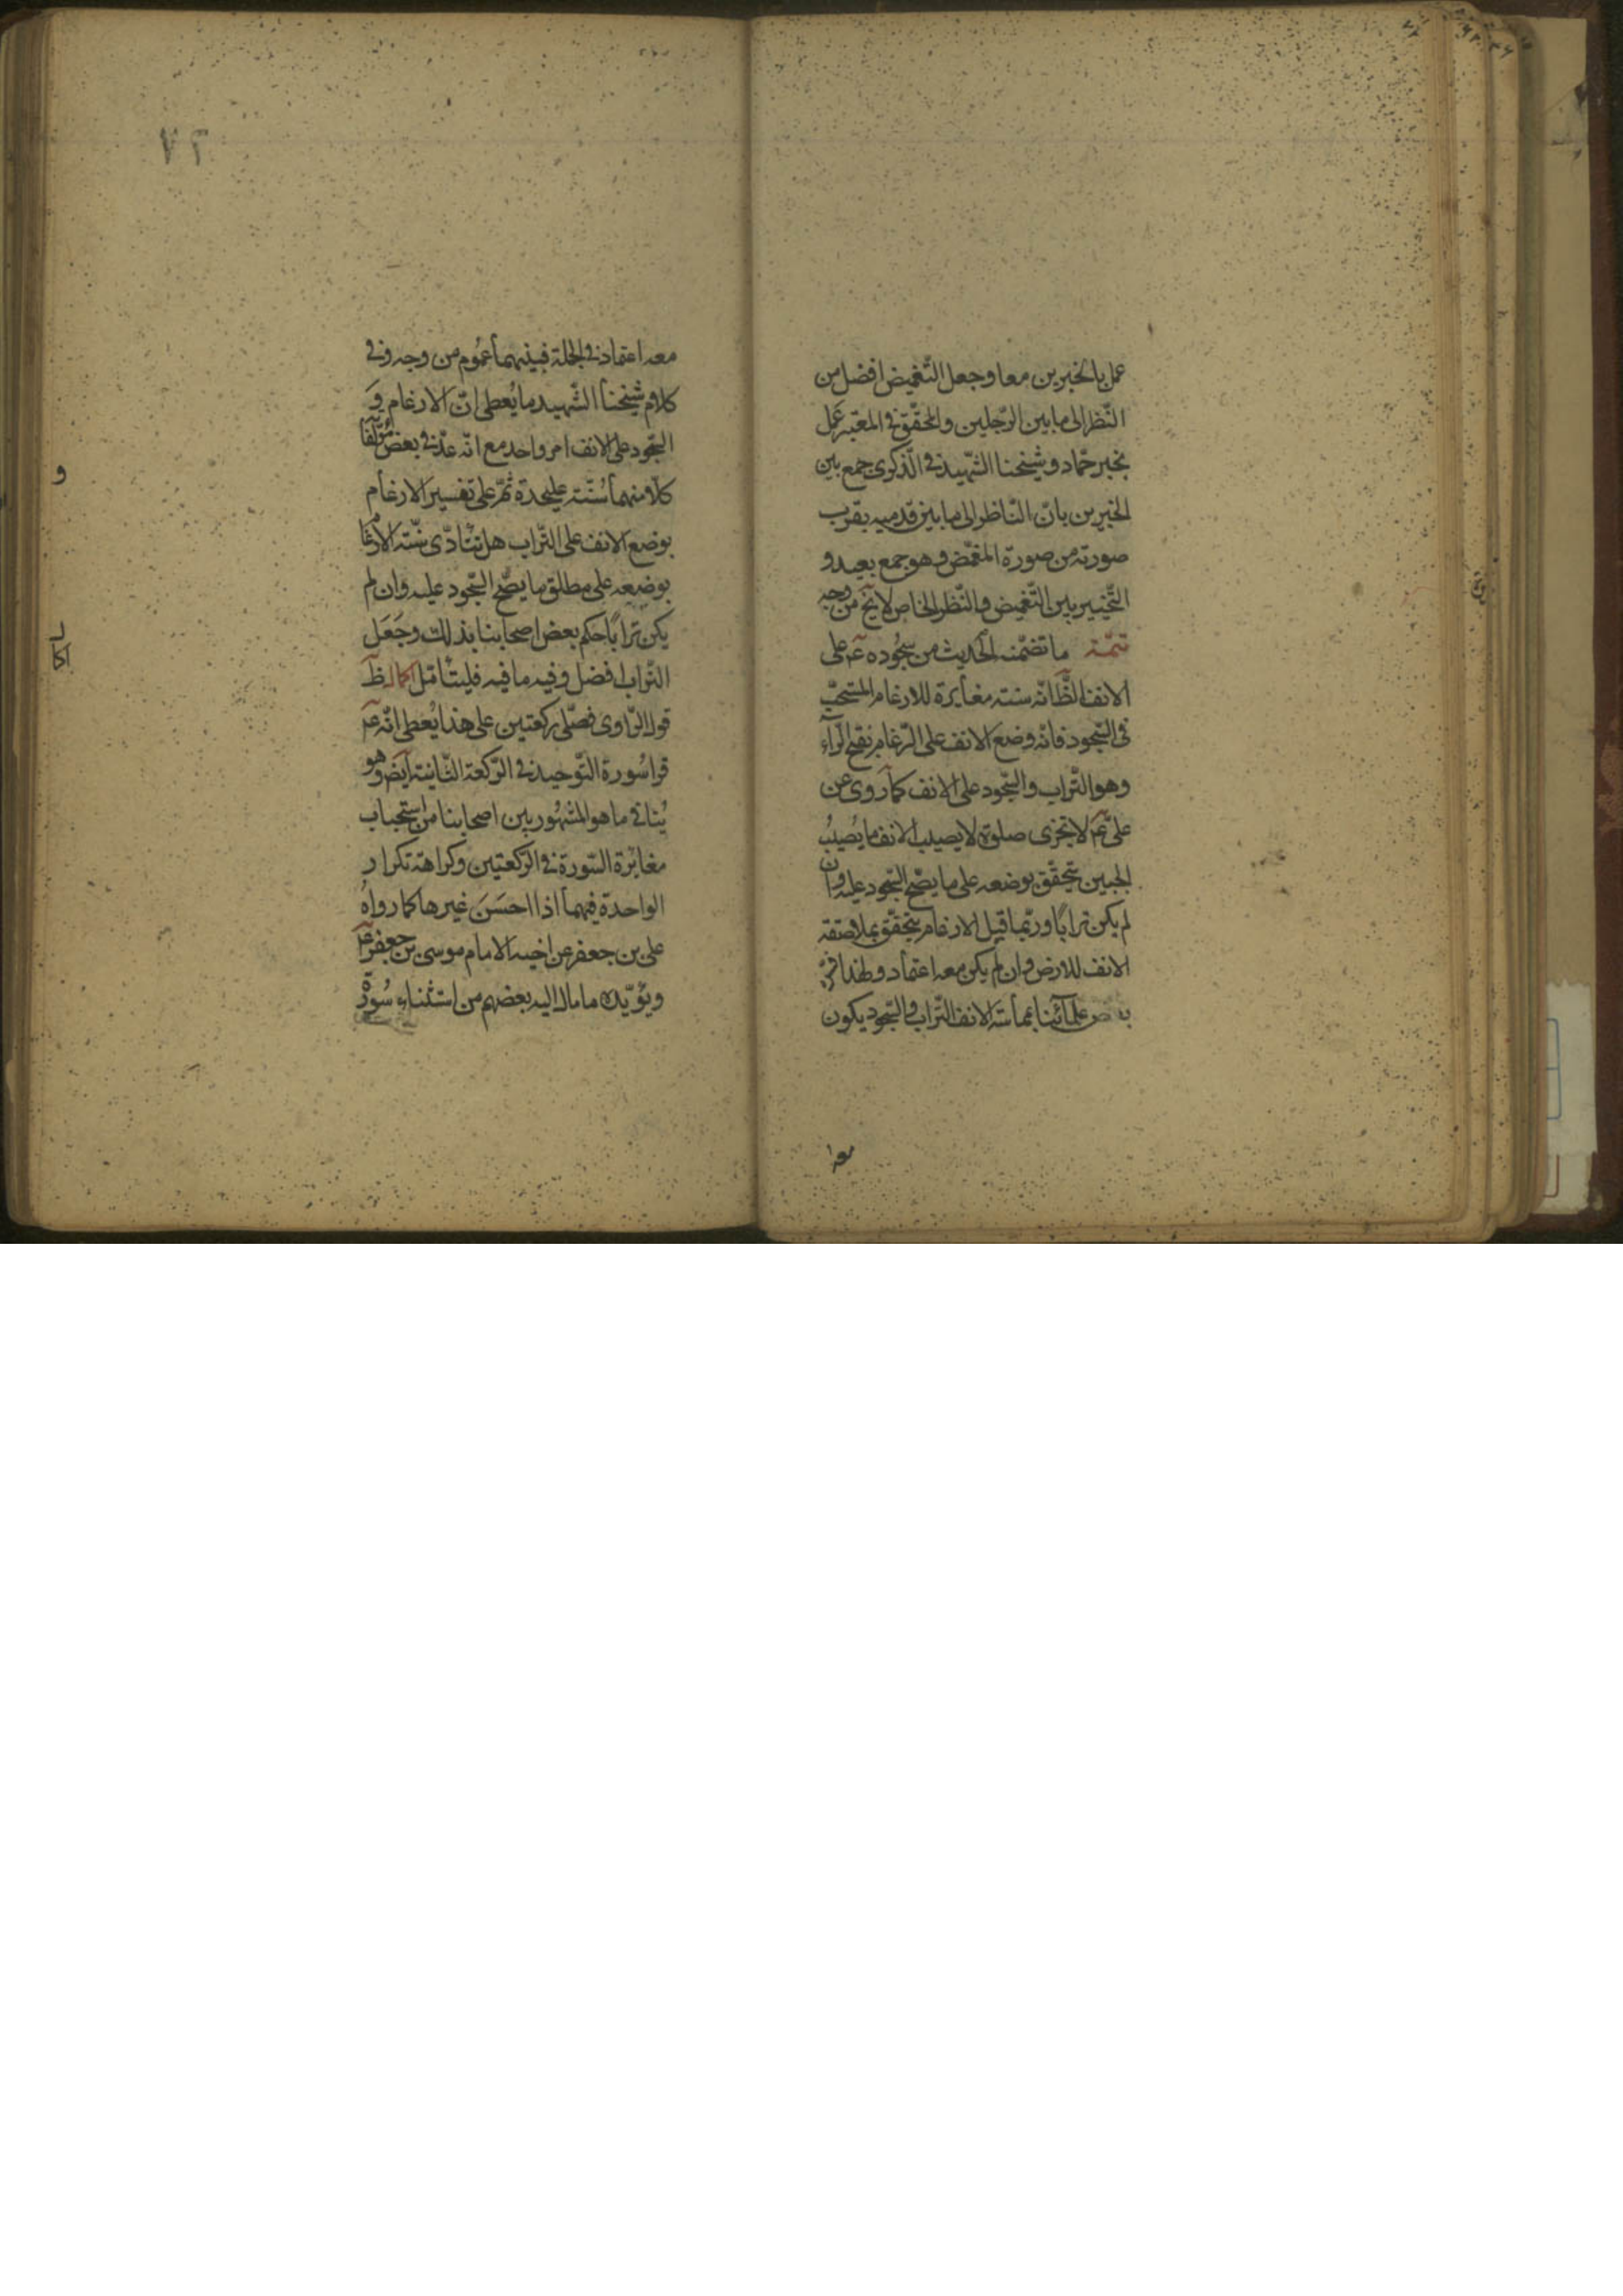 عمل بالخبرين معا وجعل التّغميض افضل من
النّظر الى ما بين الرّجلين والمحقّق فى المعتبر عَمل
بخبر حمّاد وشيخنا الشّهيد فى الذكرى جمع بين
الخبرين بانّ النّاظر الى ما بين قدميه يقرب
صورته من صورة المغمّض وهو جمع بعيد و
التّخيير بين التّغميض والنّظر الخاص لا يخ من وجه
تتمّة ما تضمّنه الحديث من سجُوده عم على
الانف الظّ انّه سنته مغايرة للارغام المستحبّ
فى السّجود فانّه وضع الانف على الرّغام بفتح الرّاء
وهو التّراب والسّجود على الانف كما روى عن
علىّ عم لا تجزى صلوة لا يصيب الانف ما يُصيبُ
الجبين يتحقّق بوضعه على ما يصّح السّجود عليه وان
لم يكن ترابًا وربّما قيل الارغام يتحقّق بملاصقة
الانف للارض وان لم يكن معه اعتماد ولهذا فسّره
بعض علمائنا بمماسّة الانف التّراب والسّجود يكون
معه
٧٢
معه اعتماد فى الجملة فبينهما عمُوم من وجه وفى
كلام شيخنا الشّهيد ما يُعطى انّ الارغام وَ
السّجود على الانف امر واحد مع انّه عدّ فى بعض مؤلّفاته
كلّا منهما سُنّة عليحدة ثمّ على تفسير الارغام
بوضع الانف على التّراب هل تتأدّى سُنّة الارغام
بوضعه على مطلق ما يصّح السّجود عليه وان لم
يكن ترابًا حكم بعض اصحابنا بذلك وجَعَل
التّراب افضل وفيه ما فيه فليتأمّل اكمال ظ
قول الرّاوى فصّلى ركعتين على هذا يُعطى انّه عم
قرا سُورة التّوحيد فى الرّكعة الثّانية ايض وهو
يُنافى ما هو المشهُور بين اصحابنا من استحباب
مغايرة السّورة فى الرّكعتين وكراهة تكرار
الواحدة فيهما اذا احسَنَ غيرها كما رواهُ
على بن جعفر عن اخيه الامام موسى بن جعفر عم
ويؤيّده ما مال اليه بعضهم من استثناء سُورة